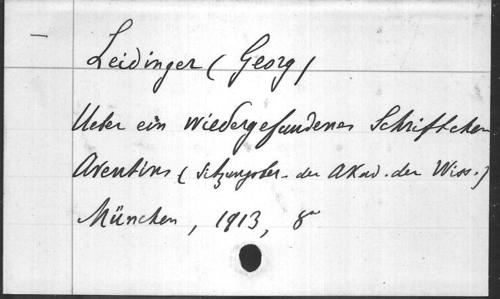 Leidinger (Georg)
Ueber ein wiedergefundenes Schriftchen
Aventins (Sitzungsber. der Akad. der Wiss.)
München, 1913, 8°